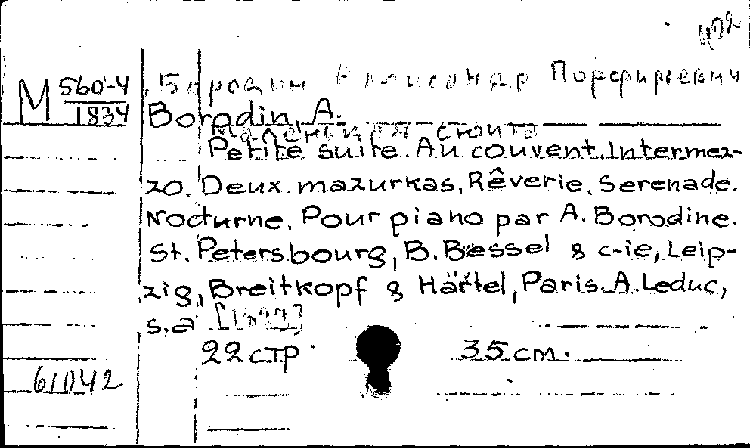 М 560-4
1834
Бородин Александр Порфирьевич
Borodin, A.
Маленькая сюита
Petite suite. Au couvent. Intermez-
zo. Deux. mazurkas, Rêverie. Serenade.
Nocturne. Pour piano par A. Borodine.
St. Petersbourg, B. Bessel & c-ie, Leip-
zig, Breitkopf & Härtel, Paris. A. Leduc,
s.a
22 стр. 35 см.
61042